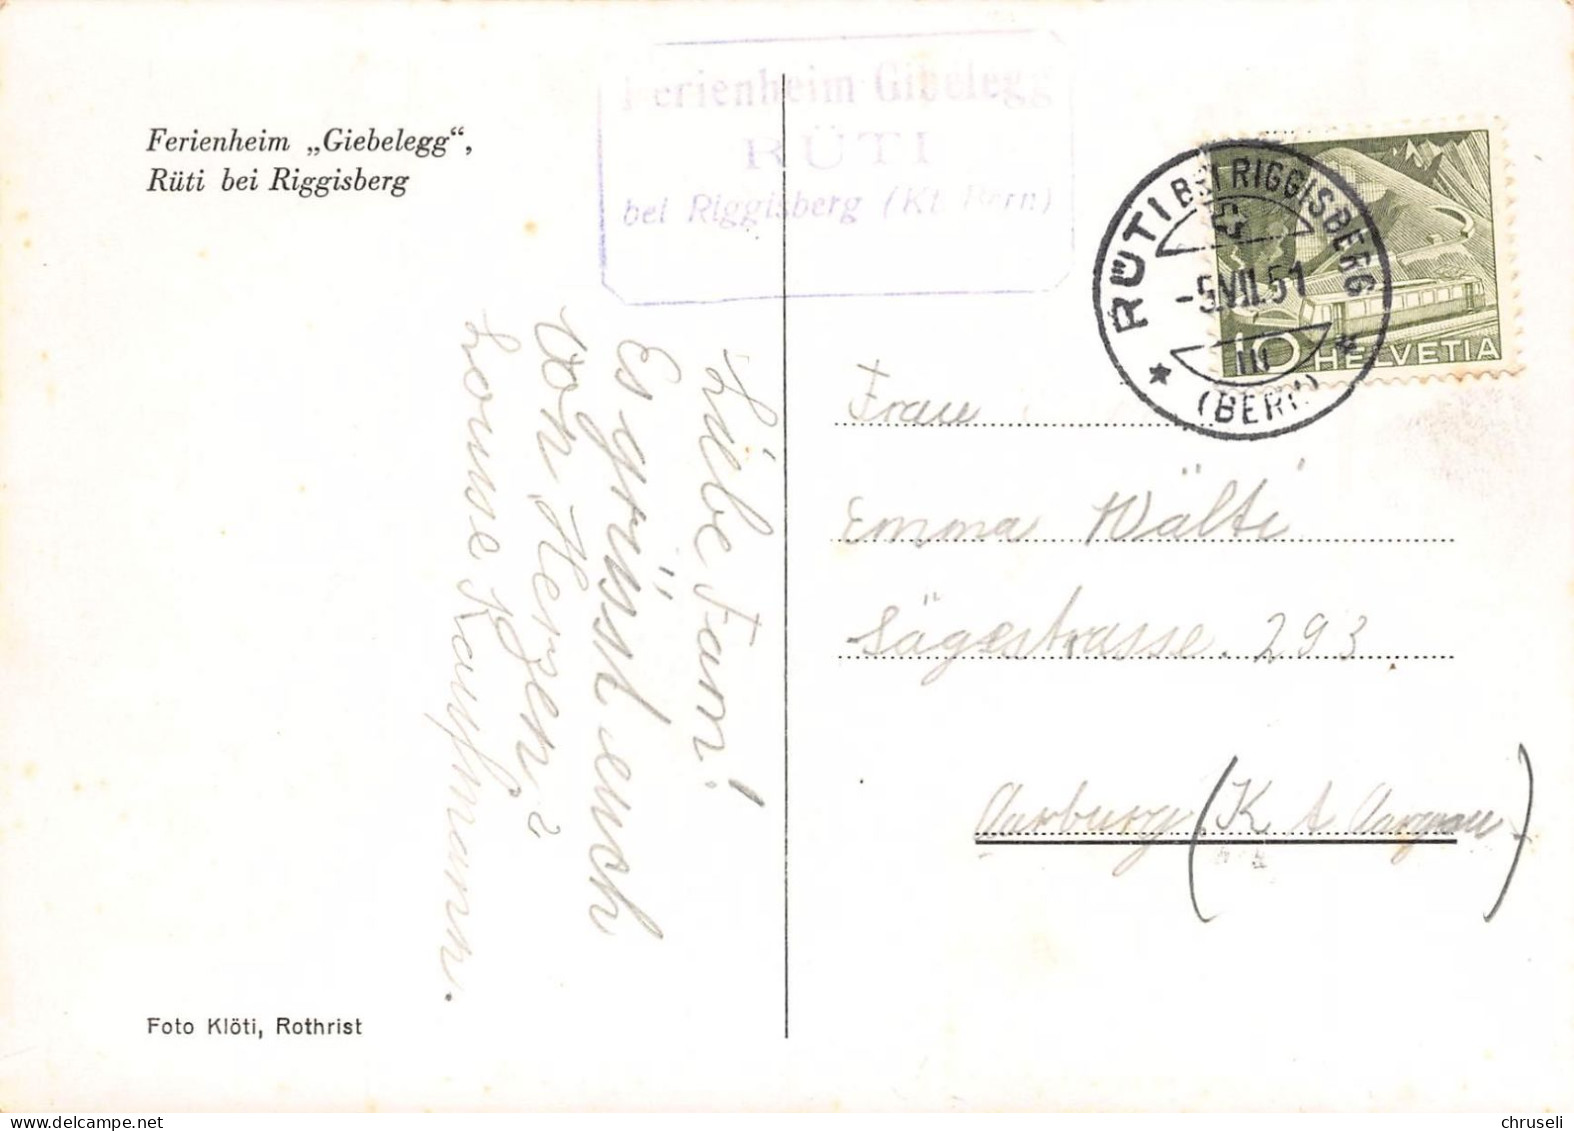 Ferienheim „Giebelegg“,
Rüti bei Riggisberg
Ferienheim Gibelegg
RÜTI
bei Riggisberg (Kt. Bern)
RÜTI BEI RIGGISBERG
-5.VII.51
III
(BERN)
10 HELVETIA
Liebe Fam!
Es grüsst euch
von Herzen
Louise Kaufmann.
Frau
Emma Wälti
Sägestrasse. 293
Aarburg (Kt Aargau)
Foto Klöti, Rothrist
chruseli